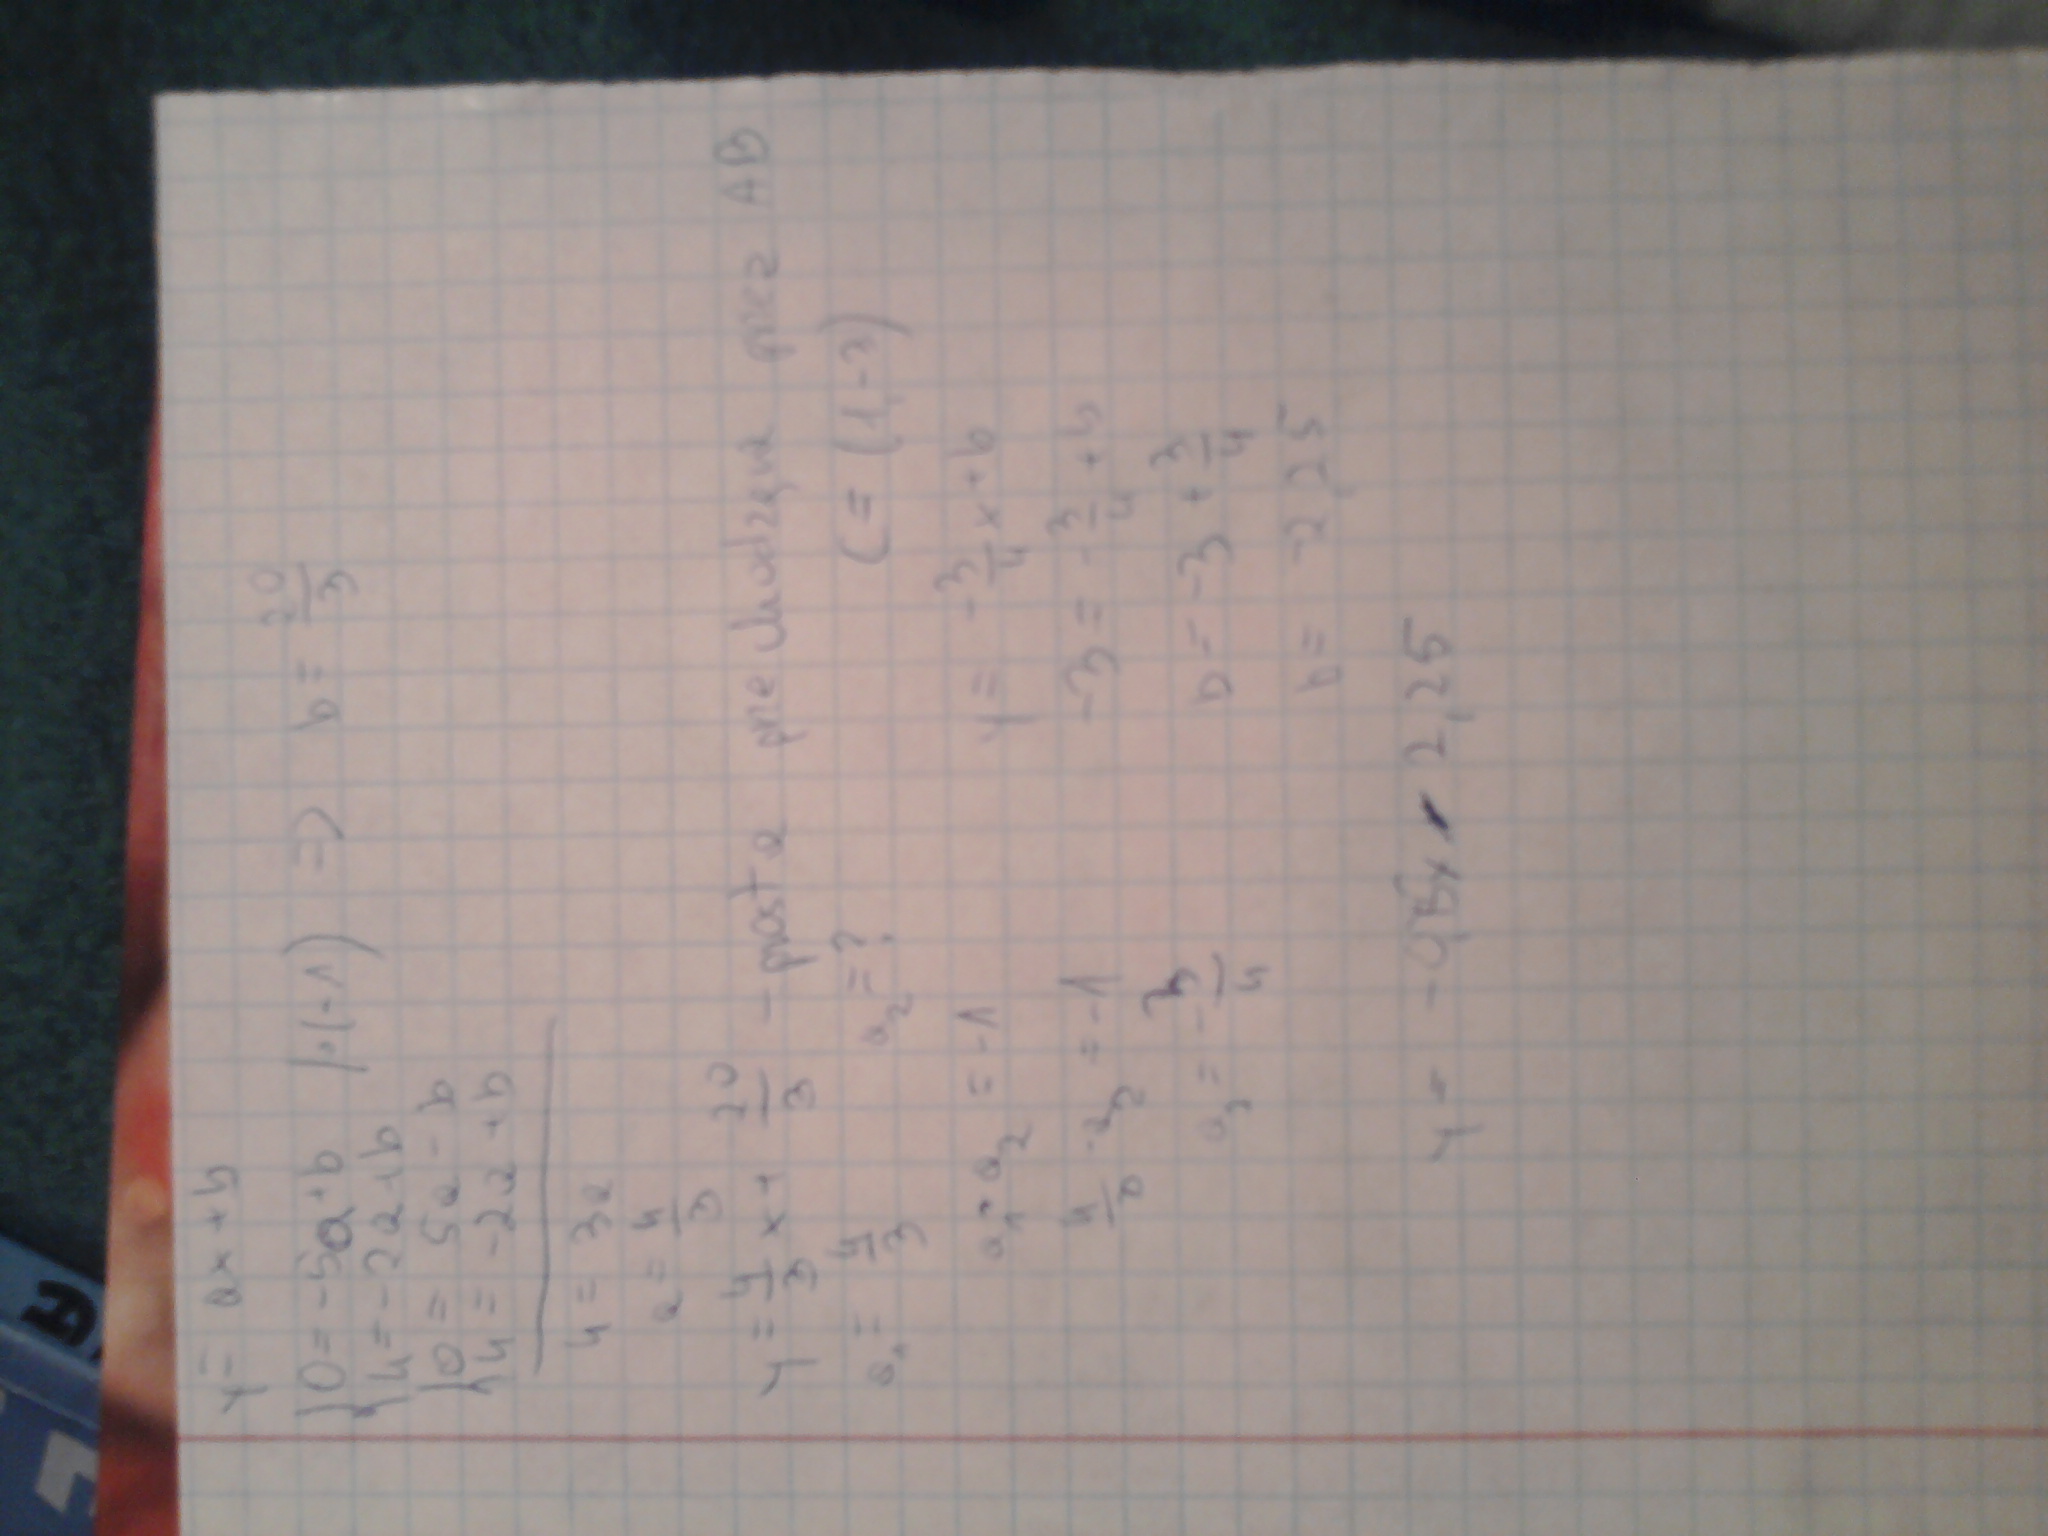 y = ax + b
{0 = -5a + b /·(-1) => b = 20/3
{4 = -2a + b
{0 = 5a - b
{4 = -2a + b
4 = 3a
a = 4/3
y = 4/3 x + 20/3 - prosta przechodząca przez AB
a₁ = 4/3 a₂ = ? C = (1,-3)
a₁ · a₂ = -1 y = -3/4 x + b
4/3 · a₂ = -1 -3 = -3/4 + b
a₂ = -3/4 b = -3 + 3/4
b = -2,25
y = -0,75x - 2,25
A